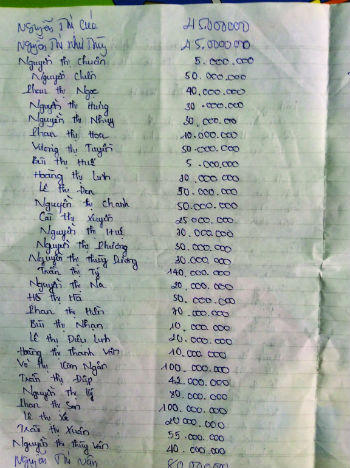 Nguyễn Thị Cúc 45000000
Nguyễn Thị Như Thủy 45.000000
Nguyễn thị chuốn 5.000.000
Nguyễn Chiến 50.000.000
Phan thị Ngọc 40.000.000
Nguyễn thị Hưng 30.000.000
Nguyễn thị Nhuy 30.000.000
Phan thị Hoa 10.000.000
Vương thị Tuyến 50.000.000
Bùi thị Huế 5.000.000
Hoàng thị Linh 30.000.000
Lê thị Đen 50.000.000
Nguyễn thị chanh 50.000.000
Cai thị Xuyến 25.000.000
Nguyễn thị Huế 30.000.000
Nguyễn thị Phương 50.000.000
Nguyễn thị thùy Dương 30.000.000
Trần thị Tý 140.000.000
Nguyễn thị Na 20.000.000
Hồ thị Hà 50.000.000
Phan thị Hiền 70.000.000
Bùi thị Nhạn 10.000.000
Lê thị Diệu Linh 20.000.000
Hoàng thị Thanh Vân 10.000.000
Võ thị Kim Ngân 100.000.000
Trần thị Đáp 42.000.000
Nguyễn thị Kỷ 80.000.000
Phan thị Sen 100.000.000
Lê thị Xê 20.000.000
Trần thị Xuân 55.000.000
Nguyễn thị thúy Vân 40.000.000
Nguyễn Thị Vân